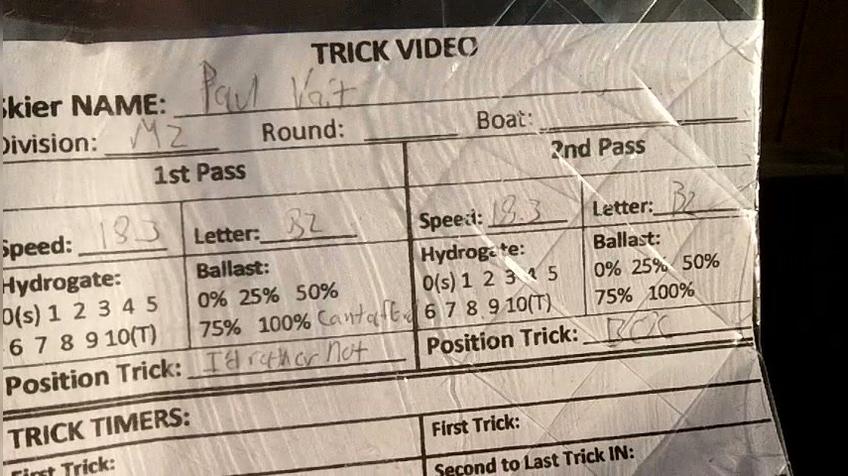 TRICK VIDEO
Skier NAME: Paul Vait
Division: M2 Round: Boat:
1st Pass 2nd Pass
Speed: 18.3 Letter: B2 Speed: 18.3 Letter: B2
Hydrogate: Ballast: Hydrogate: Ballast:
0(s) 1 2 3 4 5 0% 25% 50% 0(s) 1 2 3 4 5 0% 25% 50%
6 7 8 9 10(T) 75% 100% 6 7 8 9 10(T) 75% 100%
Position Trick: I'd rather Not Position Trick:
TRICK TIMERS: First Trick:
First Trick: Second to Last Trick IN: